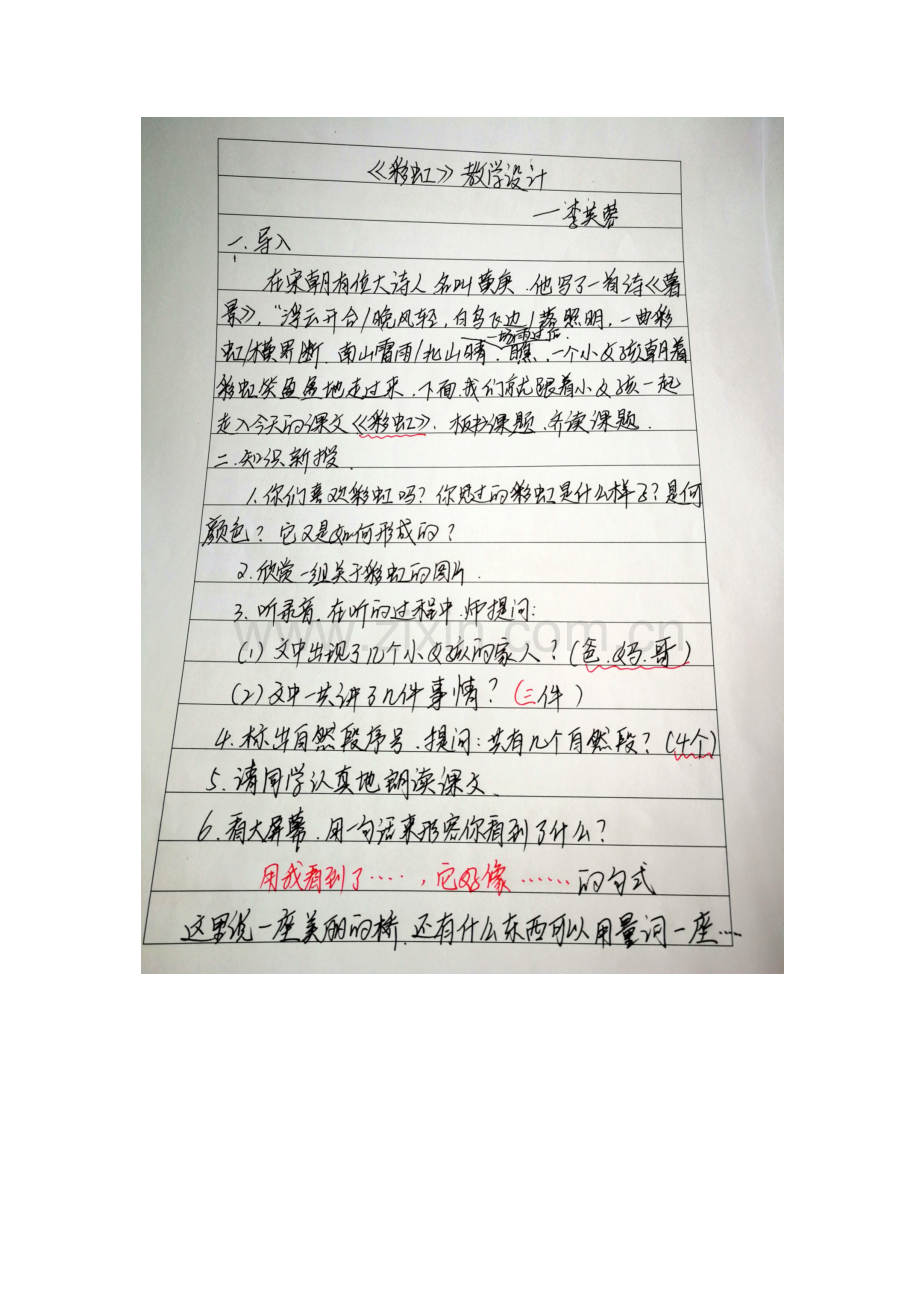 《彩虹》教学设计
—李英蓉
一.导入
在宋朝有位大诗人名叫黄庚.他写了一首诗《暑
景》,“浮云开合/晚风轻,白鸟飞边/落照明,一曲彩
一场雨过后.
虹/横界断.南山雷雨/北山晴.瞧,一个小女孩朝着
彩虹笑盈盈地走过来.下面.我们就跟着小女孩一起
走入今天的课文《彩虹》.板书课题.齐读课题.
二.知识新授.
1.你们喜欢彩虹吗?你见过的彩虹是什么样子?是何
颜色?它又是如何形成的?
2.欣赏一组关于彩虹的图片.
3.听录音.在听的过程中.师提问:
(1)文中出现了几个小女孩的家人?(爸.妈.哥)
(2)文中一共讲了几件事情?(三件)
4.标出自然段序号.提问:共有几个自然段?(4个)
5.请同学认真地朗读课文.
6.看大屏幕.用一句话来形容你看到了什么?
用我看到了……,它好像……的句式
这里说一座美丽的桥.还有什么东西可以用量词一座…
www.zixin.com.cn